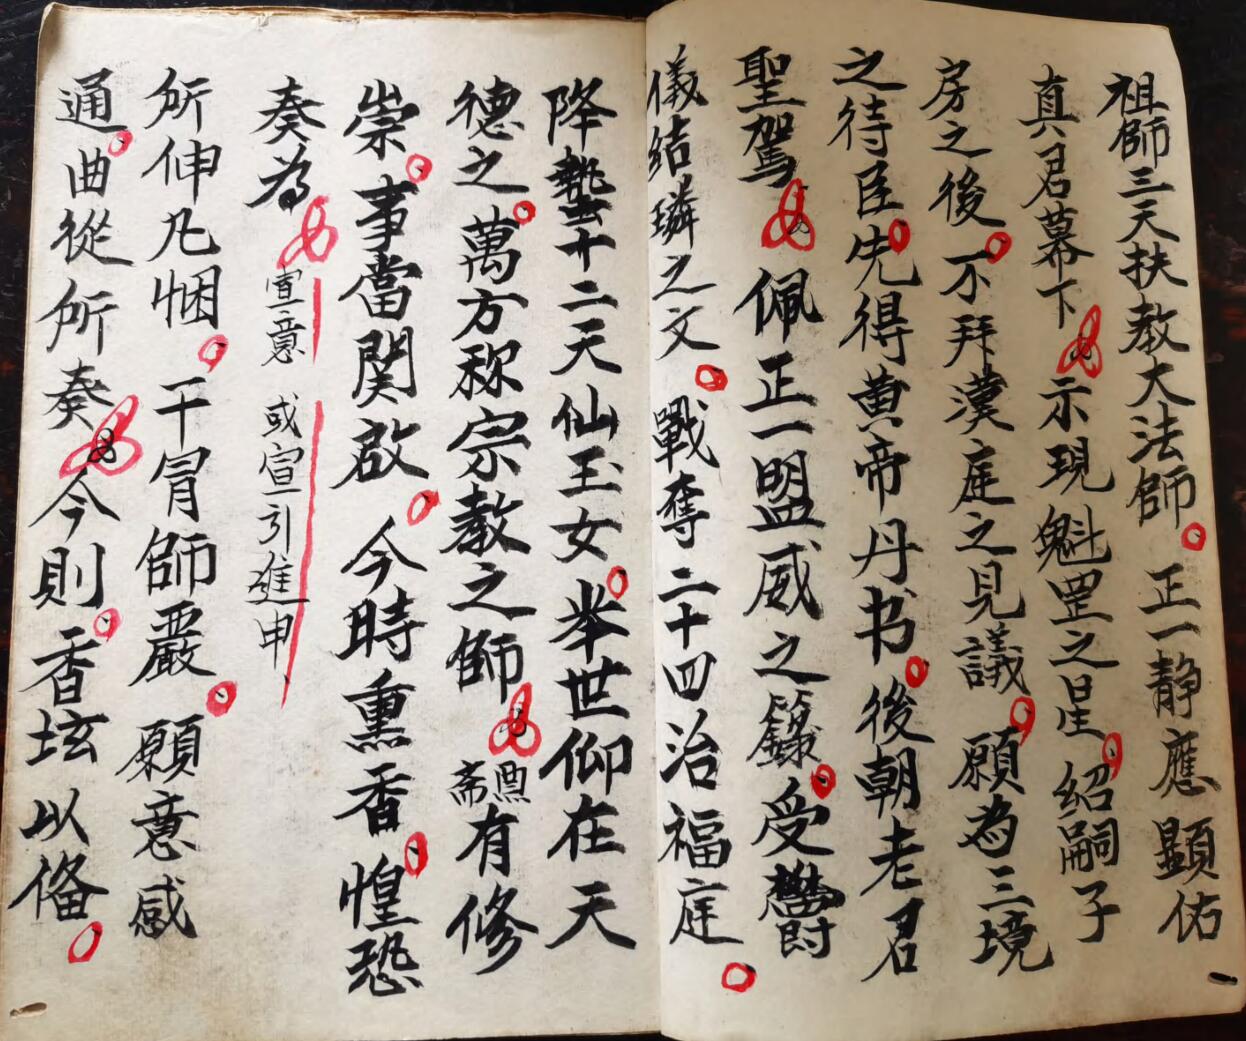 祖師三天扶教大法師正一静應顯佑
真君幕下示現魁罡之星紹嗣子
房之後不拜漢庭之見議願為三境
之待臣先得黄帝丹书後朝老君
聖駕佩正一盟威之籙受欝
儀結璘之文戰奪二十四治福庭
降蟄十二天仙玉女举世仰在天
德之萬方称宗教之師齋有修
崇事當関啟今時熏香惶恐
奏為宣意或宣引進申
所伸凡悃干冒師嚴願意感
通曲從所奏今則香坛以俻